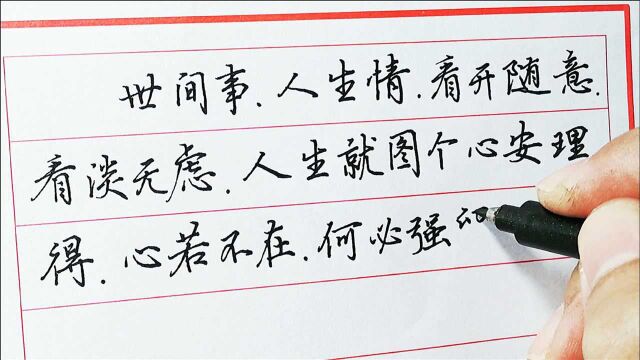 世间事.人生情.看开随意.
看淡无虑.人生就图个心安理
得.心若不在.何必强